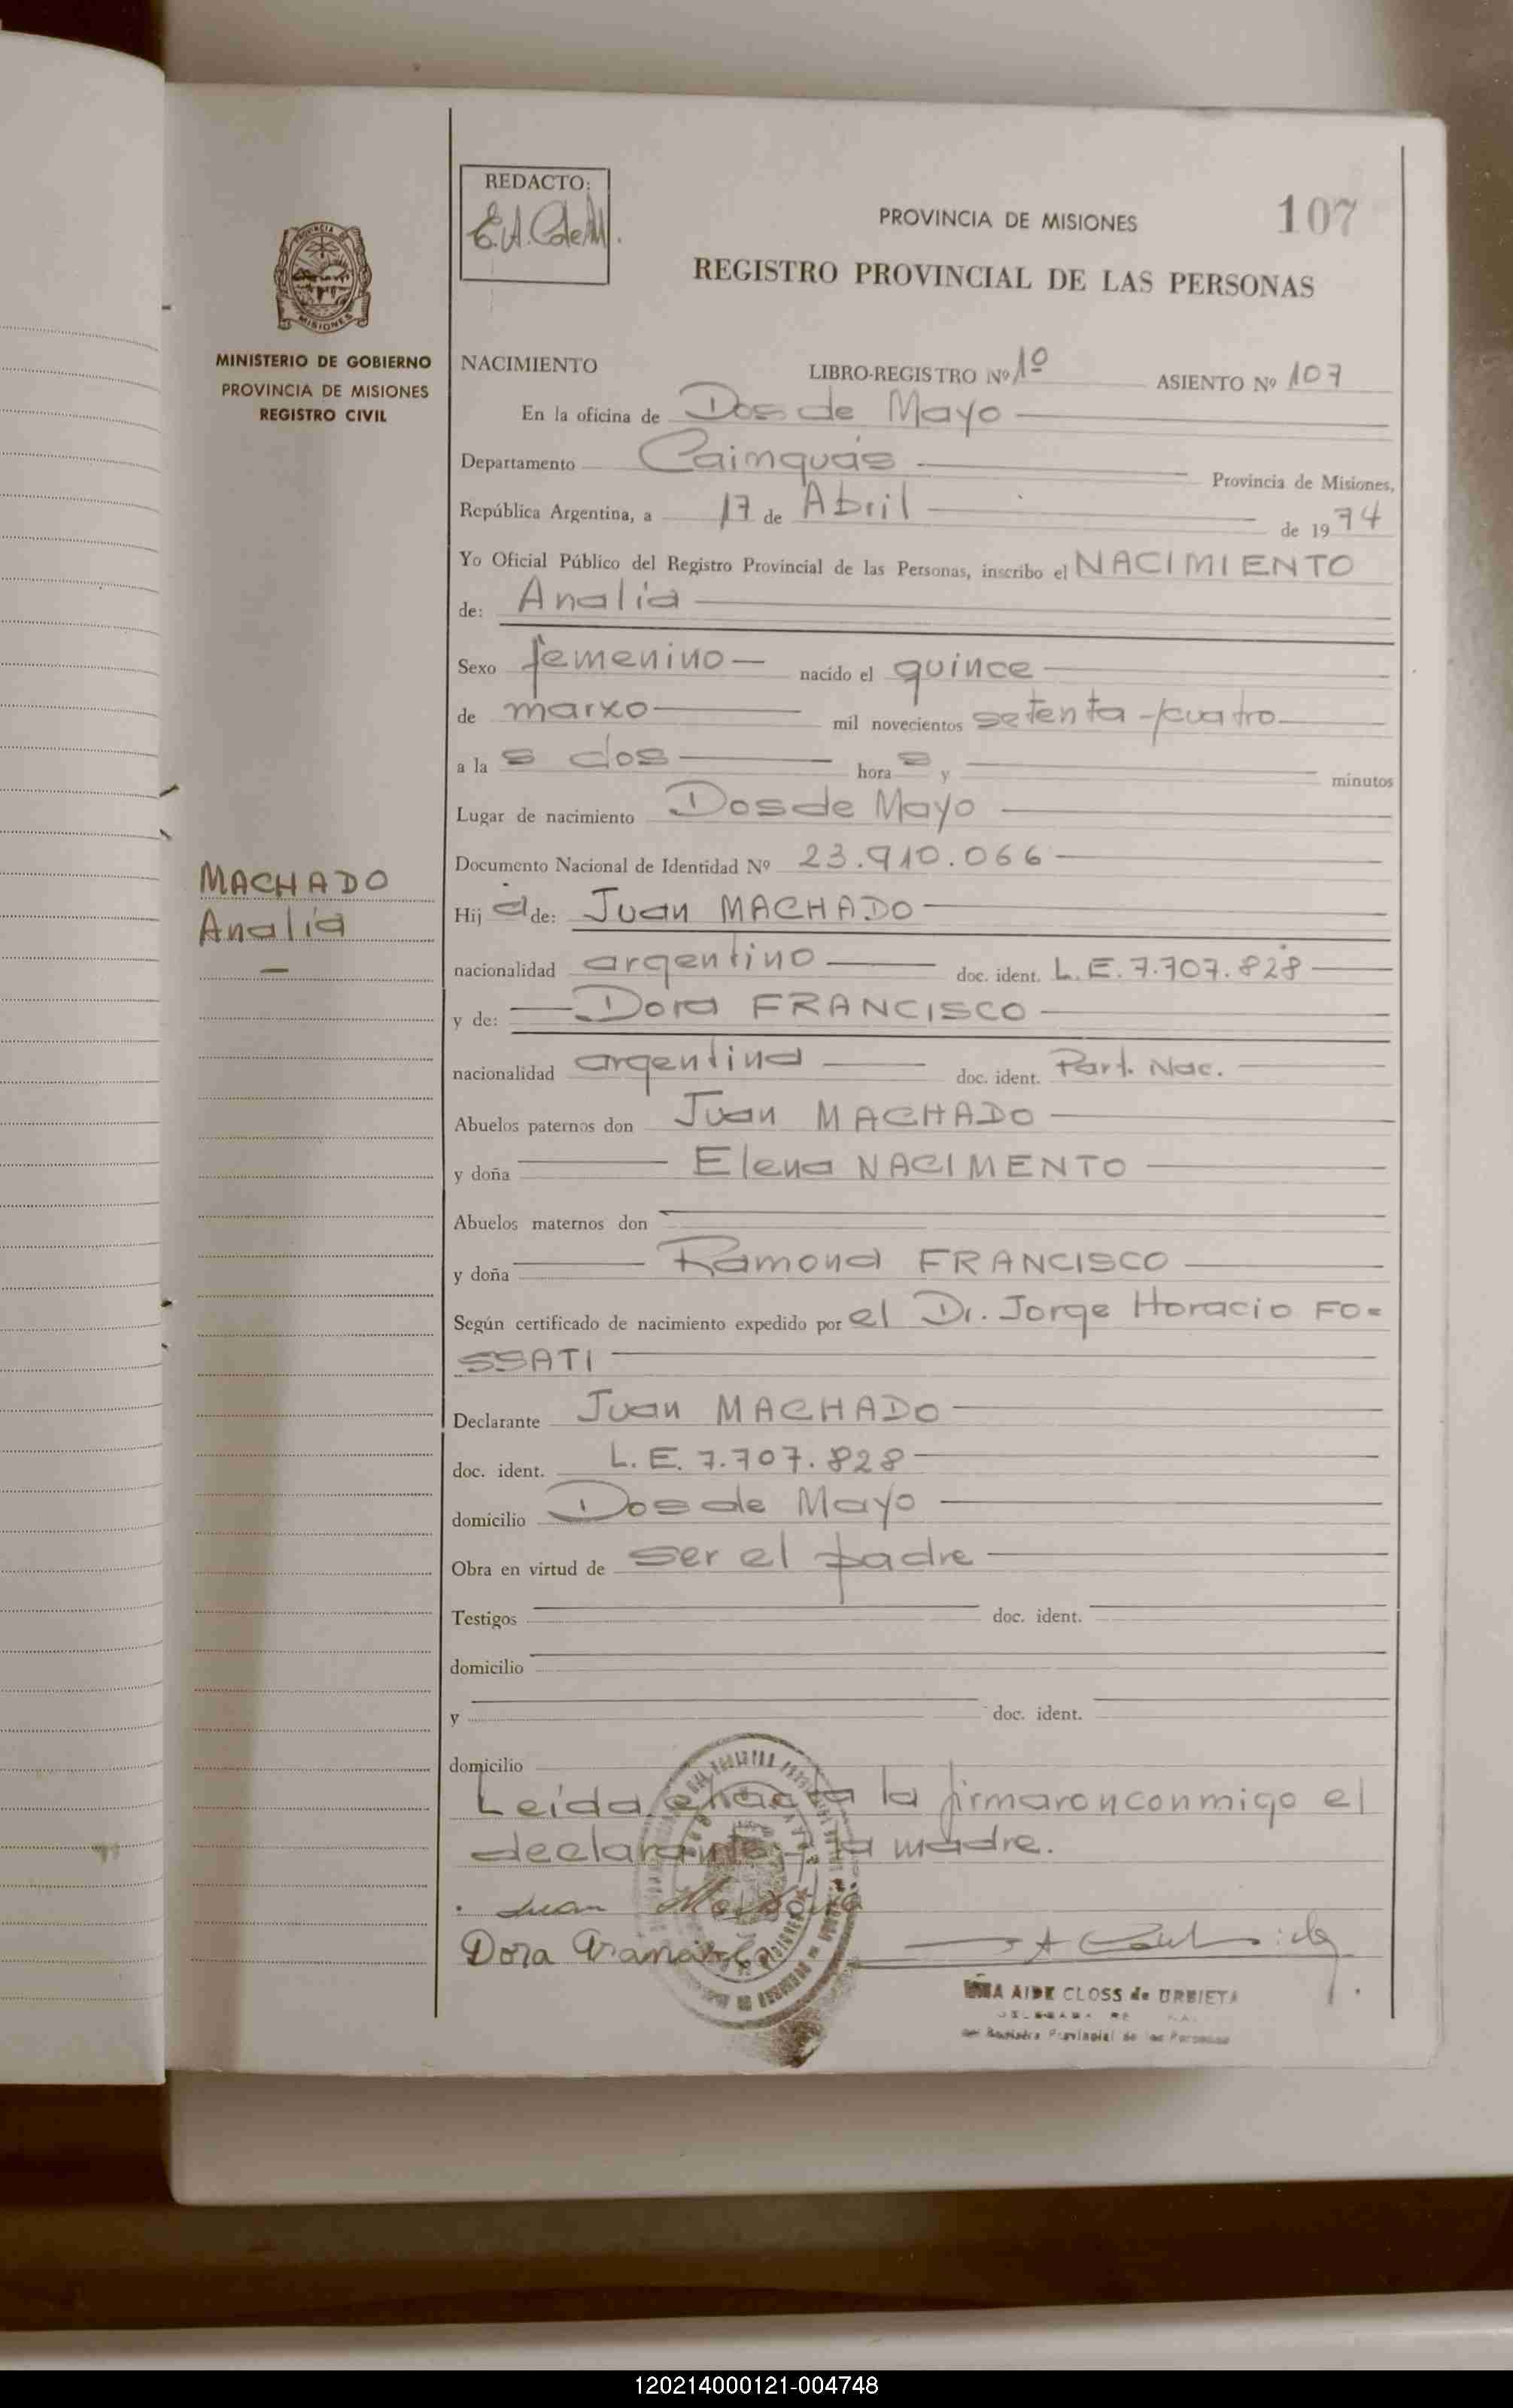 REDACTO:
E.A.CdeM.
PROVINCIA DE MISIONES
107
REGISTRO PROVINCIAL DE LAS PERSONAS
MISIONES
MINISTERIO DE GOBIERNO
PROVINCIA DE MISIONES
REGISTRO CIVIL
NACIMIENTO LIBRO-REGISTRO Nº 1º ASIENTO Nº 107
En la oficina de Dos de Mayo
Departamento Cainguás Provincia de Misiones,
República Argentina, a 17 de Abril de 1974
Yo Oficial Público del Registro Provincial de las Personas, inscribo el NACIMIENTO
de: Analía
Sexo femenino nacido el quince
de marxo mil novecientos setenta y cuatro
a la s dos hora s y minutos
Lugar de nacimiento Dos de Mayo
Documento Nacional de Identidad Nº 23.910.066
MACHADO
Analía
Hij a de: Juan MACHADO
nacionalidad argentino doc. ident. L.E. 7.707.828
y de: Dora FRANCISCO
nacionalidad argentina doc. ident. Part. Nac.
Abuelos paternos don Juan MACHADO
y doña Elena NACIMENTO
Abuelos maternos don
y doña Ramona FRANCISCO
Según certificado de nacimiento expedido por el Dr. Jorge Horacio FO=
SSATI
Declarante Juan MACHADO
doc. ident. L.E. 7.707.828
domicilio Dos de Mayo
Obra en virtud de ser el padre
Testigos doc. ident.
domicilio
y doc. ident.
domicilio
Leída el acta la firmaron conmigo el
declarante y la madre.
Juan Machado
Dora
AIDE CLOSS de URBIETA
del Registro Provincial de las Personas
120214000121-004748